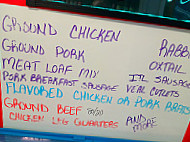 GROUND CHICKEN
GROUND PORK
MEAT LOAF MIX
PORK BREAKFAST SAUSAGE
FLAVORED CHICKEN OR PORK
GROUND BEEF 80/20
CHICKEN LEG QUARTERS
RABB
OXTAIL
ITL SAUSAG
VEAL CUTLETS
AND MORE